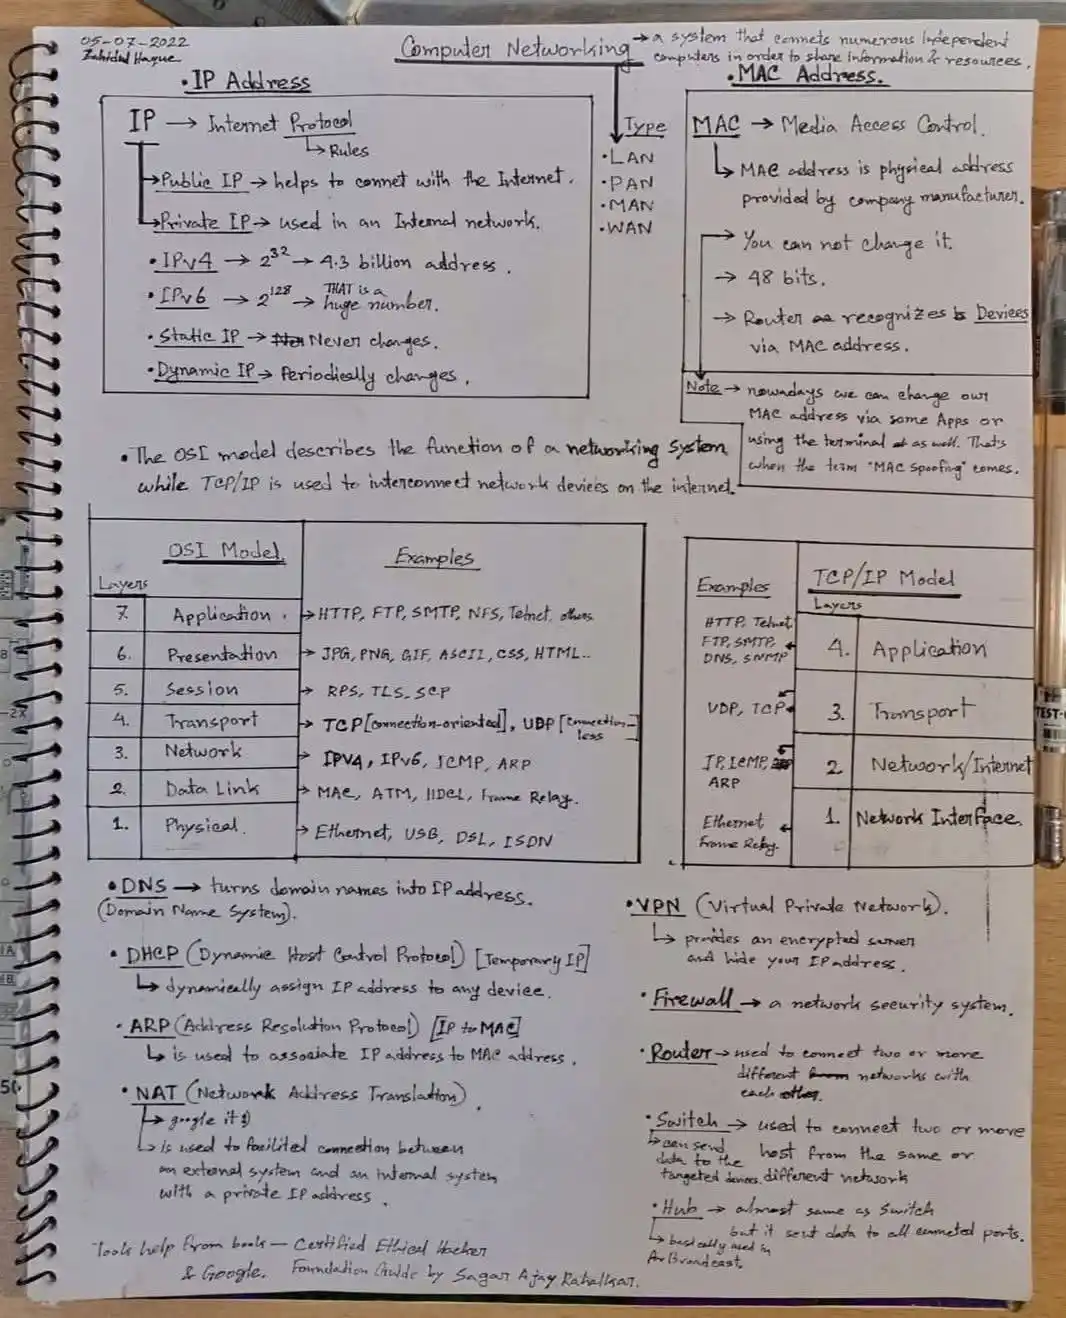 05-07-2022
Zahidul Haque
Computer Networking → a system that connets numerous Independent
computers in order to share information & resources.
• IP Address
IP → Internet Protocol
↳ Rules
→ Public IP → helps to connet with the Internet.
→ Private IP → used in an Internal network.
• IPv4 → 2^32 → 4.3 billion address.
• IPv6 → 2^128 → THAT is a
huge number.
• Static IP → Never changes.
• Dynamic IP → Periodically changes.
Type
• LAN
• PAN
• MAN
• WAN
• MAC Address.
MAC → Media Access Control.
↳ MAC address is physical address
provided by company manufacturer.
→ You can not change it.
→ 48 bits.
→ Router recognizes Devices
via MAC address.
Note → nowadays we can change our
MAC address via some Apps or
using the terminal as well. That's
when the term "MAC spoofing" comes.
• The OSI model describes the function of a networking system
while TCP/IP is used to interconnect network devices on the internet.
OSI Model
Examples
Layers
7. Application. → HTTP, FTP, SMTP, NFS, Telnet, others
6. Presentation → JPG, PNG, GIF, ASCII, CSS, HTML..
5. Session → RPS, TLS, SCP
4. Transport → TCP [connection-oriented], UDP [connection-
less]
3. Network → IPV4, IPv6, ICMP, ARP
2. Data Link → MAC, ATM, HDCL, Frame Relay.
1. Physical. → Ethernet, USB, DSL, ISDN
Examples
TCP/IP Model
Layers
HTTP, Telnet
FTP, SMTP,
DNS, SNMP
4. Application
UDP, TCP
3. Transport
IP, ICMP,
ARP
2 Network/Internet
Ethernet,
Frame Relay.
1. Network Interface.
• DNS → turns domain names into IP address.
(Domain Name System).
• DHCP (Dynamic Host Control Protocol) [Temporary IP]
↳ dynamically assign IP address to any device.
• ARP (Address Resolution Protocol) [IP to MAC]
↳ is used to associate IP address to MAC address.
• NAT (Network Address Translation).
↳ google it :)
↳ is used to facilited connection between
an external system and an internal system
with a private IP address.
• VPN (Virtual Private Network).
↳ provides an encrypted server
and hide your IP address.
• Firewall → a network security system.
• Router → used to connect two or more
different networks with
each other.
• Switch → used to connect two or more
host from the same or
different network
↳ can send
data to the
targeted devices.
• Hub → almost same as Switch
but it sent data to all conneted ports.
↳ basically used in
Broadcast.
Took help from book — Certified Ethical Hacker
& Google. Foundation Guide by Sagar Ajay Rahalkar.